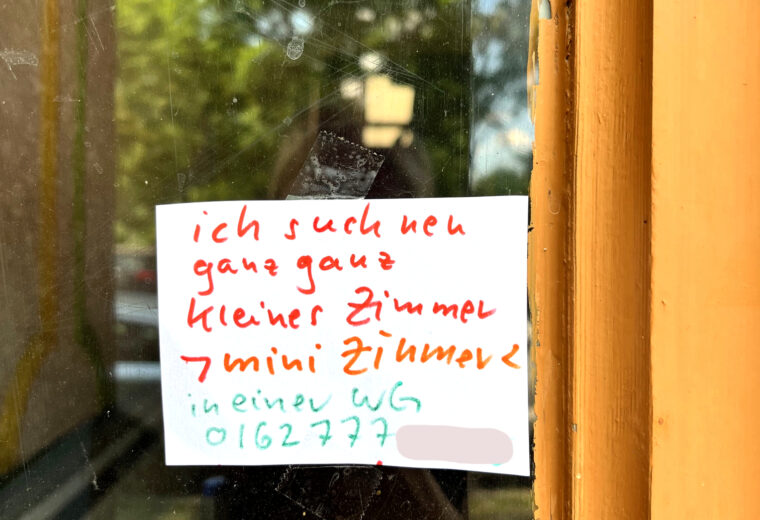 ich such nen
ganz ganz
kleines Zimmer
>mini Zimmer<
in einer WG
0162777